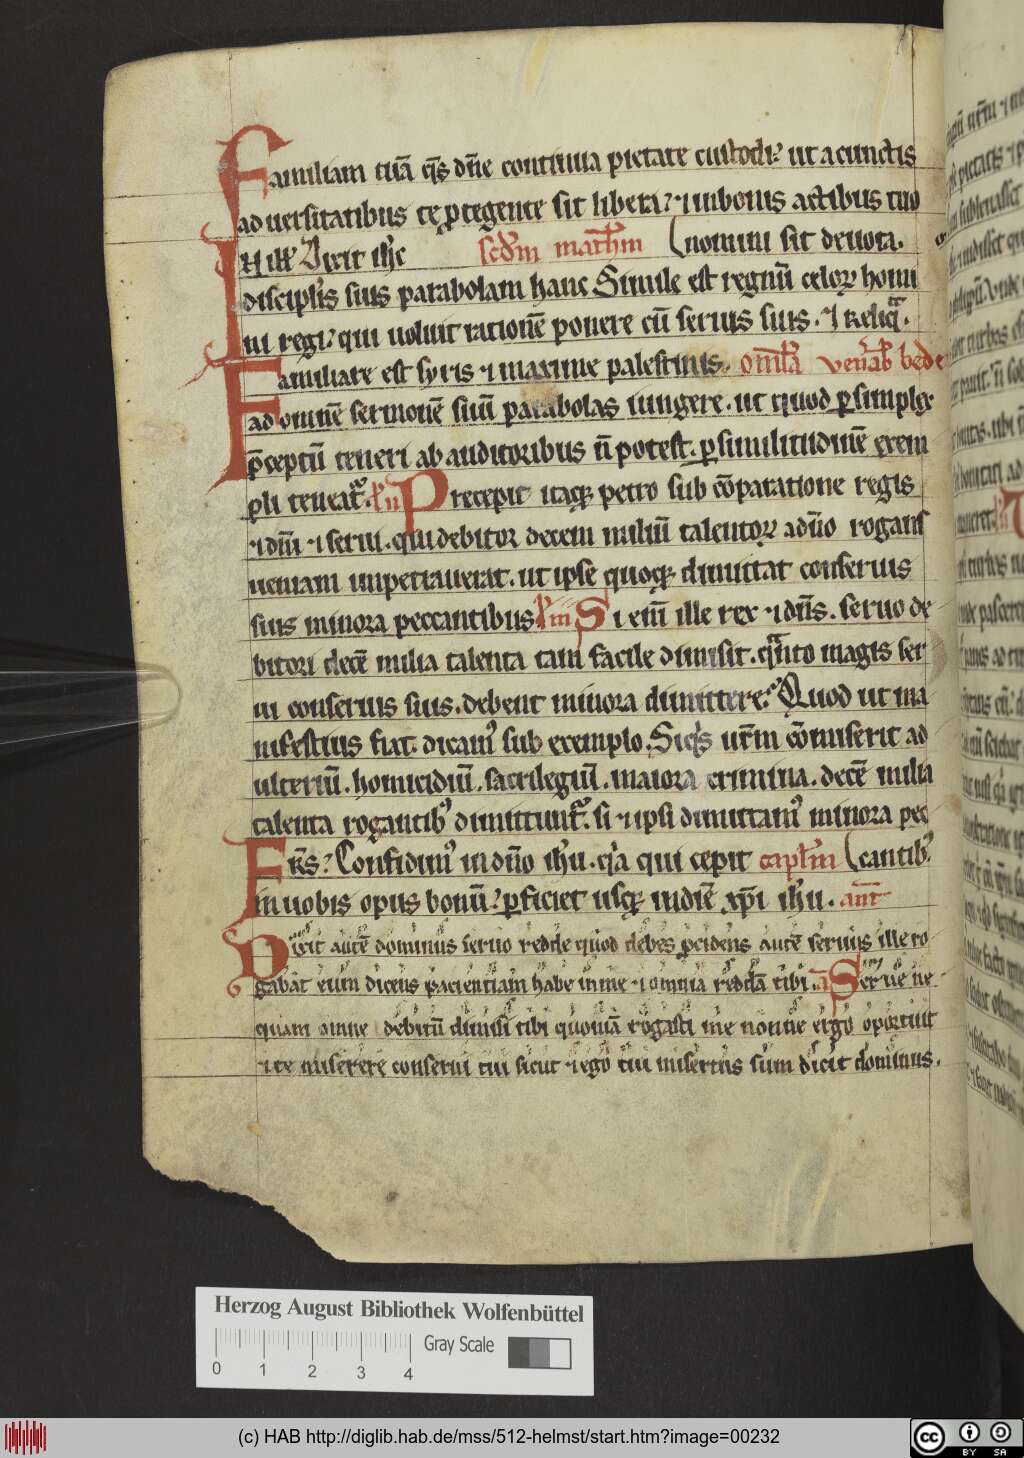 Familiam tuā q̄s dn̄e continua pietate custodi. ut a cunctis
aduersitatibus te ꝓtegente sit libera. ⁊ in bonis actibus tuo
In ill̄ Dixit ih̄c sc̄dm math̄m nomini sit deuota.
discipl̄is suis parabolam hanc Simile est regnū celoꝝ homi
ni regi. qui uoluit rationē ponere cū seruis suis. ⁊ Reliq̄.
Familiare est syris ⁊ maxime palestinis. om̄la ven̄ab bede
ad omnē sermonē suū parabolas iungere. ut quod ꝑ simplex
p̄ceptū teneri ab auditoribus n̄ potest. ꝑ similitudinē exem
pli teneat̄. l̄ ii Precepit itaqꝫ petro sub cōparatione regis
⁊ dn̄i ⁊ serui. qui debitor decem miliū talentoꝝ a dn̄o rogans
ueniam impetrauerat. ut ipse quoqꝫ dimittat conseruis
suis minora peccantibus l̄ iii Si enī ille rex ⁊ dn̄s. seruo de
bitori decē milia talenta tam facile dimisit. qanto magis ser
ui conseruis suis. debent minora dimittere. Quod ut ma
nifestius fiat. dicam' sub exemplo. Siq's ur̄m cōmiserit ad
ulteriū. homicidiū. sacrilegiū. maiora crimina. decē milia
talenta rogantib' dimittunt̄. si ⁊ ipsi dimittam' minora pec
Fr̄s. Confidim' in dn̄o ih̄u. q'a qui cepit capl̄m cantib'.
in uobis opus bonū. ꝑficiet usqꝫ in diē xp̄i ih̄u. ant̄
Dixit autē dominus seruo redde quod debes ꝓcidens autē seruus ille ro
gabat eum dicens pacientiam habe in me ⁊ omnia reddā tibi. a Serue ne
quam omne debitū dimisi tibi quoniā rogasti me nonne ergo oportuit
⁊ te miserere conserui tui sicut ⁊ ego tui misertus sum dicit dominus.
Herzog August Bibliothek Wolfenbüttel
Gray Scale
0 1 2 3 4
(c) HAB http://diglib.hab.de/mss/512-helmst/start.htm?image=00232
cc BY SA